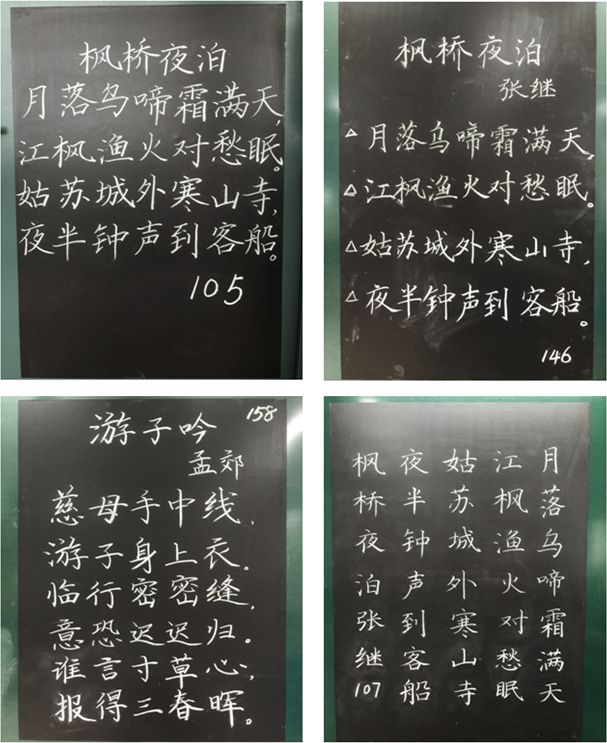 枫桥夜泊
月落鸟啼霜满天,
江枫渔火对愁眠。
姑苏城外寒山寺,
夜半钟声到客船。
105
枫桥夜泊
张继
△月落乌啼霜满天,
△江枫渔火对愁眠。
△姑苏城外寒山寺,
△夜半钟声到客船。
146
158
游子吟
孟郊
慈母手中线,
游子身上衣。
临行密密缝,
意恐迟迟归。
谁言寸草心,
报得三春晖。
月落乌啼霜满天
江枫渔火对愁眠
姑苏城外寒山寺
夜半钟声到客船
枫桥夜泊张继107